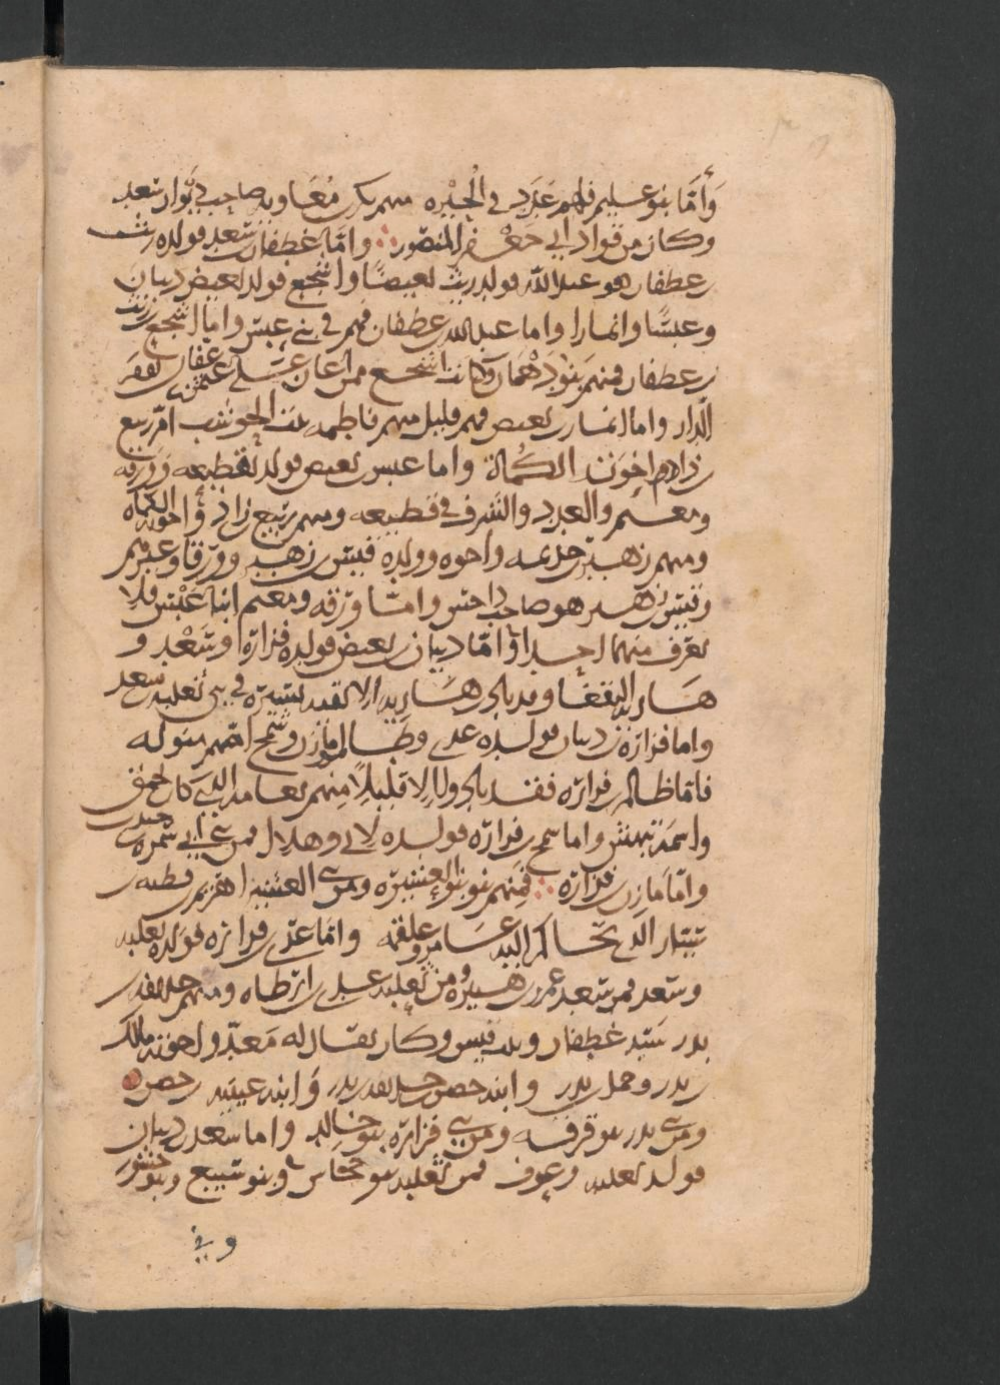 وَأمَّا بنو عليم فلهم عَدَد في الْجِيْره منهم بكر بن مُعَاويه صاحب ديوان سعد
وكان من قواد أبي جَعْفر المنصور ∴ وامَّا غطفان بن سَعد فولده ريث
بن غطفان هو عبد الله فولد ريث بغيضًا واشجع فولد بغيض ذبيان
وعبسًا وانمارا واما عبد الله بن غطفان فهم في بني عبس واما اشجع بن ريث
بن غطفان فمنهم بنو دَهْمان وكانت اشجع ممن اعان على عثمن بن عفان يوم
الدار واما انمار بن بغيض فهم قليل منهم فاطمه بنت الخوشب ام ربيع
بن زاد واخوته الكُماة واما عبس بن بغيض فولد قطيعه وورقه
ومعتم والعدد والشرف في قطيعه ومنهم ربيع بن زاد واخوته الكماه
ومنهم زهير بن جذيمه واخوه وولده قيس بن زهير وورقا وغيرهم
وقيس بن زهير هو صاحب داحس وامّا ورقه ومعتم ابنا عَبْس فلا
تعرف منهما احدا وامّا ذبيان بن بغيض فولده فزارة وسَعْد و
هاربه البقعا وقد باد بنو هَاربه الا نفر يسيرة في بني ثعلبه بن سعد
واما فزارة بن ذبيان فولده عدي وظالم ومازن وشمخ امهم منوله
فامّا ظالم بن فزاره فقد بادوا الا قليلًا منهم نعامه الذي كان يحمق
واسمه بيهس واما شمخ بن فزارة فولده لاي وهلال فمن بني ابي سمره بن جندب
وامّا مازن بن فزارة ∴ فمنهم بنو العشيره ومن بني العشيره هرم بن قطبه بن
سيّار الذي تحاكم اليه عامر وعلقمه وامّا عدي بن فزاره فولده ثعلبه
وسعد فمن سعد عمر بن هبيرة ومن ثعلبه عدي بن ارطاه ومنهم حذيفه بن
بدر سيّد غطفان وبيت قيس وكان يقال له رب معدّ واخوته مالك
بن بدر وحمل بن بدر وابنه حصن بن حذيفه بن بدر وابنه عيينه بن حصن
ومن بني بدر بنو قرفه ومن بني فزارة بنو خالد واما سعد بن ذبيان
فولد ثعلبه وعوف فمن ثعلبه بنو جحاش وبنو سبيع وبنو حشور
وفي